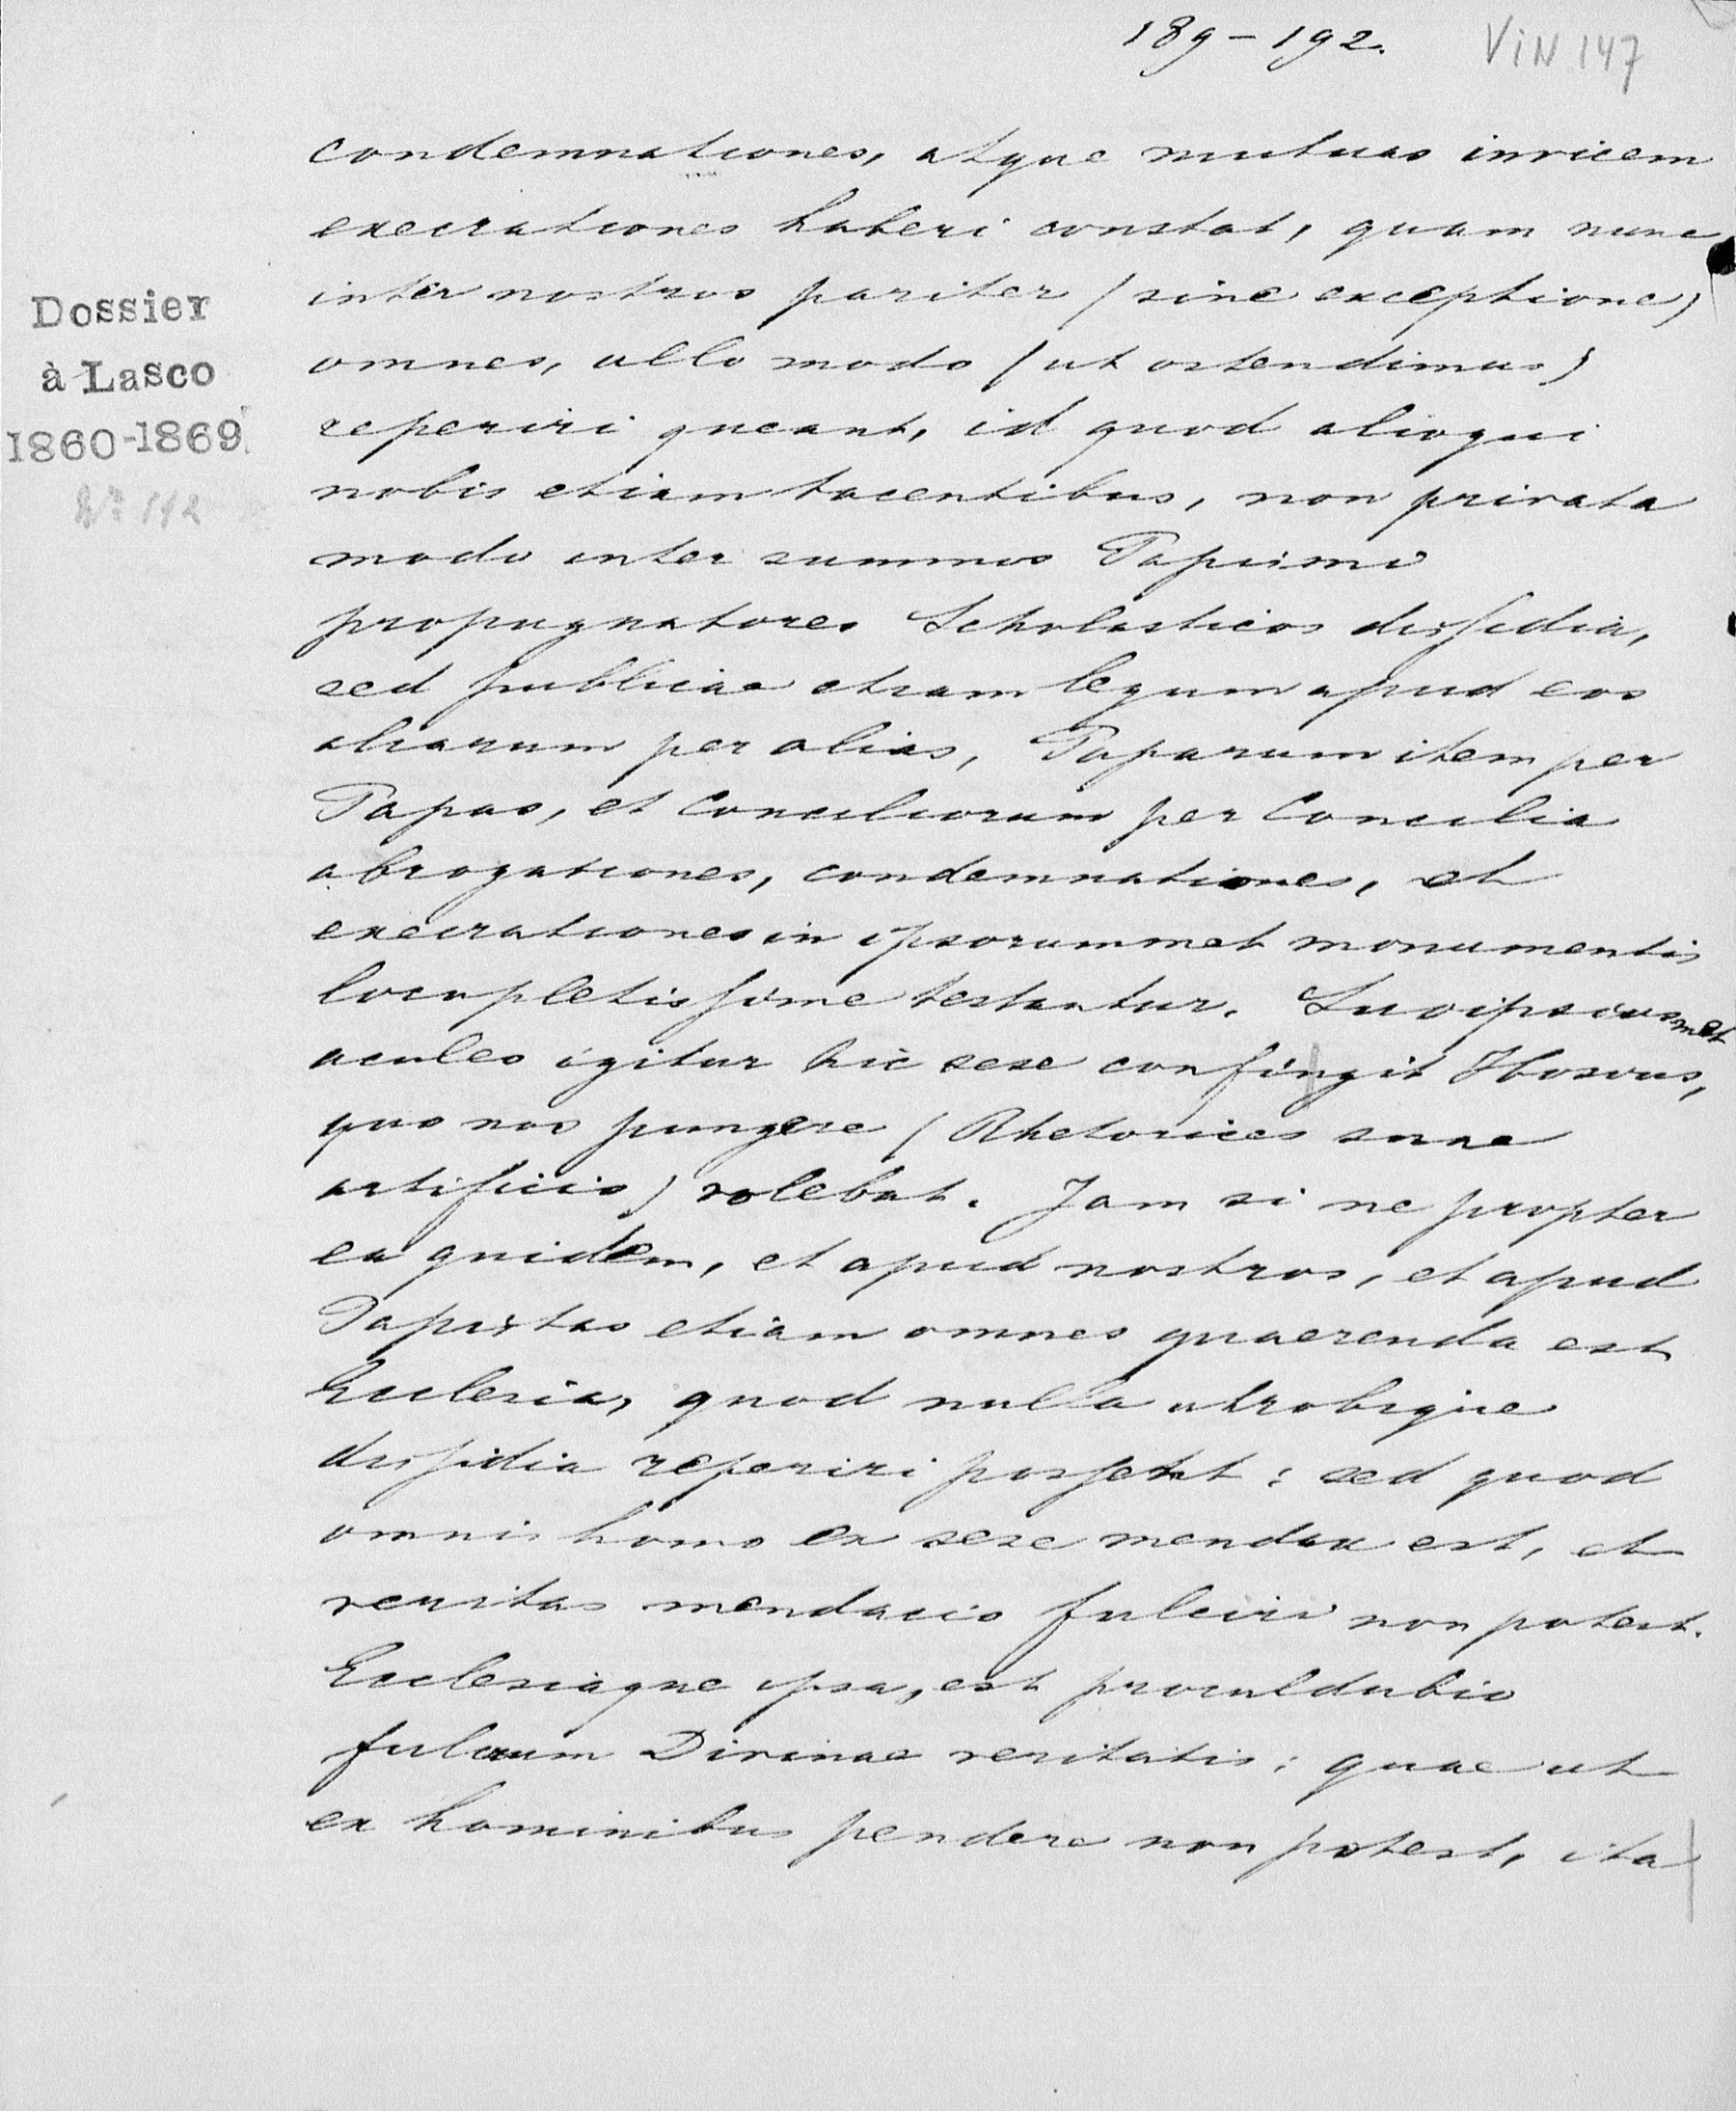 189-192.
VIN 147
Dossier
à Lasco
1860-1869
No 112
condemnationes, atque mutuas invicem
execrationes haberi constat, quam nunc
inter nostros pariter (sine exceptione)
omnes, ullo modo (ut ostendimus)
reperiri queant, id quod alioqui
nobis etiam tacentibus, non privata
modo inter summos Papismi
propugnatores Scholasticos dissidia,
sed publicae etiam legum apud eos
aliarum per alias, Paparum item per
Papas, et Conciliorum per Concilia
abrogationes, condemnationes, et
execrationes in ipsorummet monumentis
locupletissime testantur. Suoipsiusmet
aculeo igitur hic sese confingit Hosius,
quo nos pungere (Rhetorices suae
artificio) volebat. Jam si ne propter
ea quidem, et apud nostros, et apud
Papistas etiam omnes quaerenda est
Ecclesia, quod nulla utrobique
dissidia reperiri possent: sed quod
omnis homo ex sese mendax est, et
veritas mendacio fulciri non potest.
Ecclesiaque ipsa, est proculdubio
fulcrum Divinae veritatis: quae ut
ex hominibus pendere non potest, ita